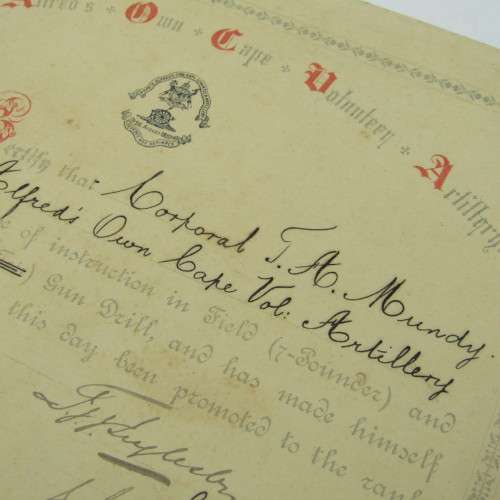 Alfred's Own Cape Volunteer Artillery
Certify that Corporal T. A. Mundy.
Alfred's Own Cape Vol: Artillery
of instruction in Field (7-Pounder) and
) Gun Drill, and has made himself
this day been promoted to the rank